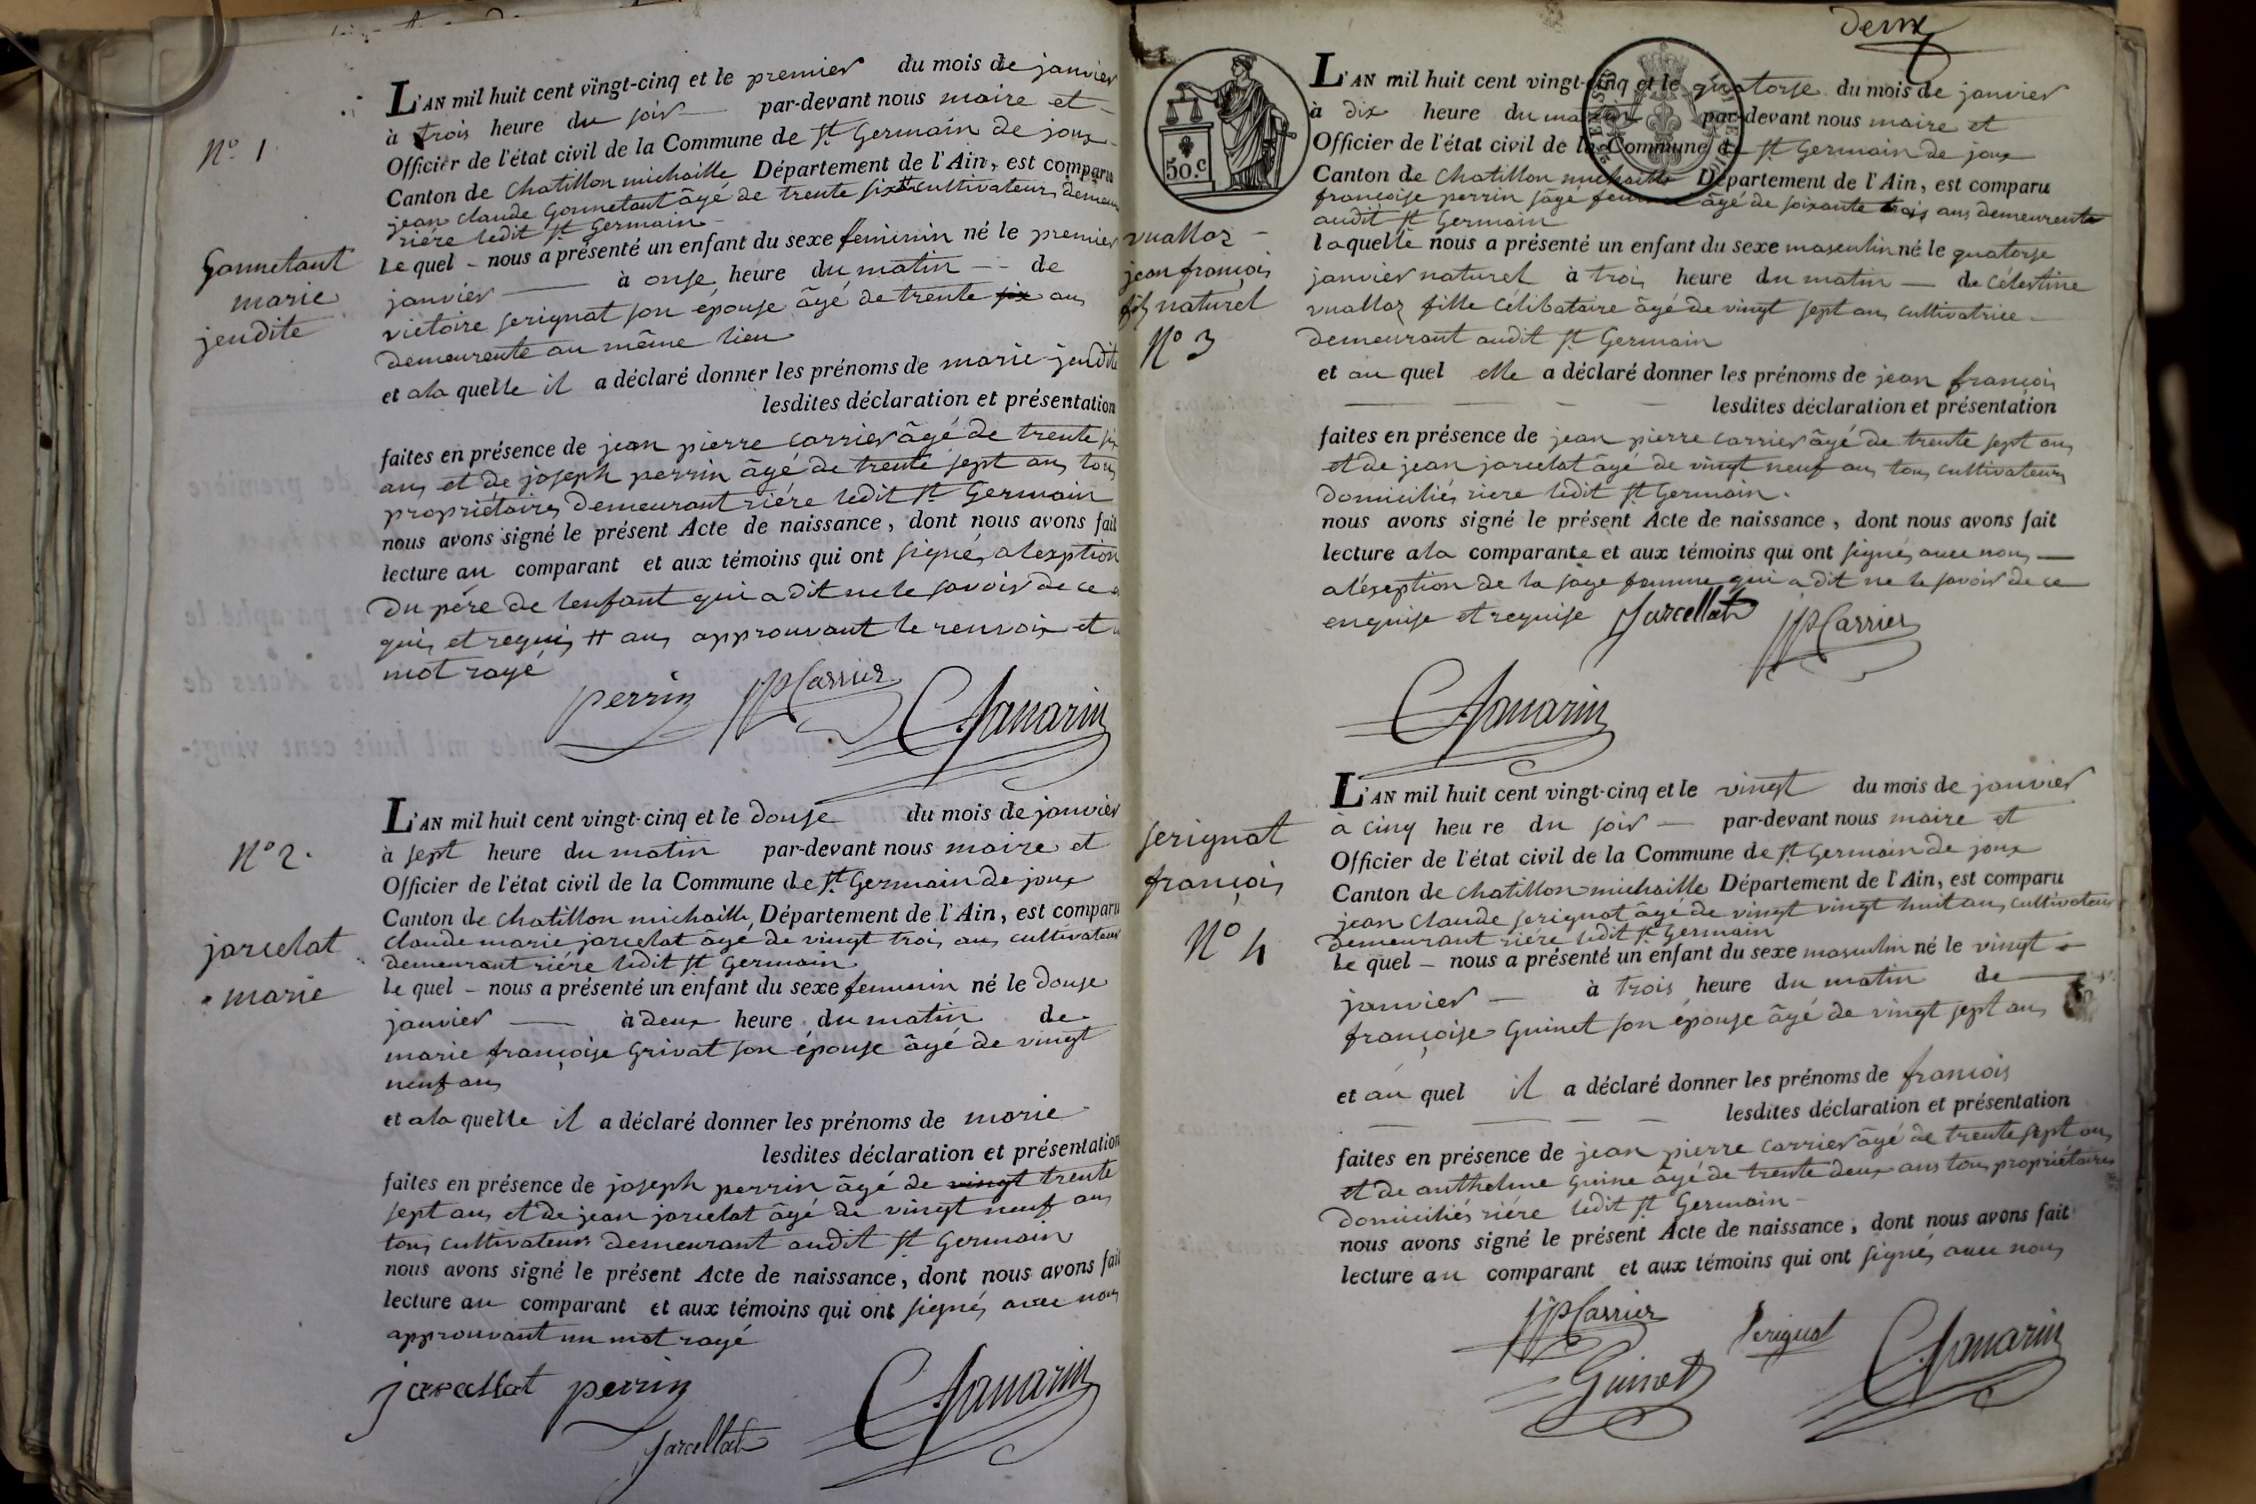 N° 1
Gonnetant
marie
jeudite
L'AN mil huit cent vingt-cinq et le premier du mois de janvier
à trois heure du soir par-devant nous maire et
Officier de l'état civil de la Commune de St Germain de joux
Canton de Chatillon michaille Département de l'Ain, est comparu
jean claude Gonnetant âgé de trente six # cultivateur, demeu
rière ledit St Germain
Le quel - nous a présenté un enfant du sexe feminin né le premier
janvier à onse heure du matin - de
victoire serignat son épouse âgé de trente six ans
demeurente au même lieu
et a la quelle il a déclaré donner les prénoms de marie jeudite
lesdites déclaration et présentation
faites en présence de jean pierre carrier âgé de trente six
ans et de joseph perrin âgé de trente sept ans tous
propriétaires demeurant riére ledit St Germain
nous avons signé le présent Acte de naissance, dont nous avons fait
lecture au comparant et aux témoins qui ont signés a lexption
du pére de lenfant qui a dit ne le savoir de ce
quis et requis # ans approuvant le renvoix et
mot rayé
perrin JPCarrier
N° 2.
jarcelat
marie
L'AN mil huit cent vingt-cinq et le douse du mois de janvier
à sept heure du matin par-devant nous maire et
Officier de l'état civil de la Commune de St Germain de joux
Canton de Chatillon michaille, Département de l'Ain, est comparu
claude marie jarcelat âgé de vingt trois ans cultivateur
demeurant riére ledit St Germain
Le quel - nous a présenté un enfant du sexe feminin né le douse
janvier à deux heure du matin de
marie françoise Grivat son épouse âgé de vingt
neuf ans
et a la quelle il a déclaré donner les prénoms de marie
lesdites déclaration et présentation
faites en présence de joseph perrin âgé de vingt trente
sept ans et de jean jarcelat âgé de vingt neuf ans
tous cultivateurs demeurant audit St Germain
nous avons signé le présent Acte de naissance, dont nous avons fait
lecture au comparant et aux témoins qui ont signés avec nous
approuvant un mot rayé
perrin
Jarcellat
deux
50.c
vuallaz
jean françois
fils naturel
N° 3
L'AN mil huit cent vingt-cinq et le quatorse du mois de janvier
à dix heure du matin par-devant nous maire et
Officier de l'état civil de la Commune de St Germain de joux
Canton de Chatillon michaille Département de l'Ain, est comparu
françoise perrin sage femme âgé de soixante trois ans demeurente
audit St Germain
laquelle nous a présenté un enfant du sexe masculin né le quatorse
janvier naturel à trois heure du matin - de célestine
vuallaz fille célibataire âgé de vingt sept ans cultivatrice
demeurant audit St Germain
et au quel elle a déclaré donner les prénoms de jean françois
lesdites déclaration et présentation
faites en présence de jean pierre carrier âgé de trente sept ans
et de jean jarcelat âgé de vingt neuf ans tous cultivateurs
domiciliés riere ledit St Germain.
nous avons signé le présent Acte de naissance, dont nous avons fait
lecture a la comparante et aux témoins qui ont signés avec nous
a léxeption de la sage femme qui a dit ne le savoir de ce
enquise et requise Jarcellat JPCarrier
serignat
françois
N° 4
L'AN mil huit cent vingt-cinq et le vingt du mois de janvier
à cinq heure du soir par-devant nous maire et
Officier de l'état civil de la Commune de St Germain de joux
Canton de Chatillon michaille Département de l'Ain, est comparu
jean claude serignat âgé de vingt vingt huit ans cultivateur
demeurant riére ledit St Germain
Le quel - nous a présenté un enfant du sexe masculin né le vingt
janvier à trois heure du matin de
françoise Guinet son épouse âgé de vingt sept ans
et au quel il a déclaré donner les prénoms de françois
lesdites déclaration et présentation
faites en présence de jean pierre carrier âgé de trente sept ans
et de anthelme Guine âgé de trente deux ans tous propriétaires
domiciliés riére ledit St Germain
nous avons signé le présent Acte de naissance, dont nous avons fait
lecture au comparant et aux témoins qui ont signés avec nous
JPCarrier Serignat
Guinet